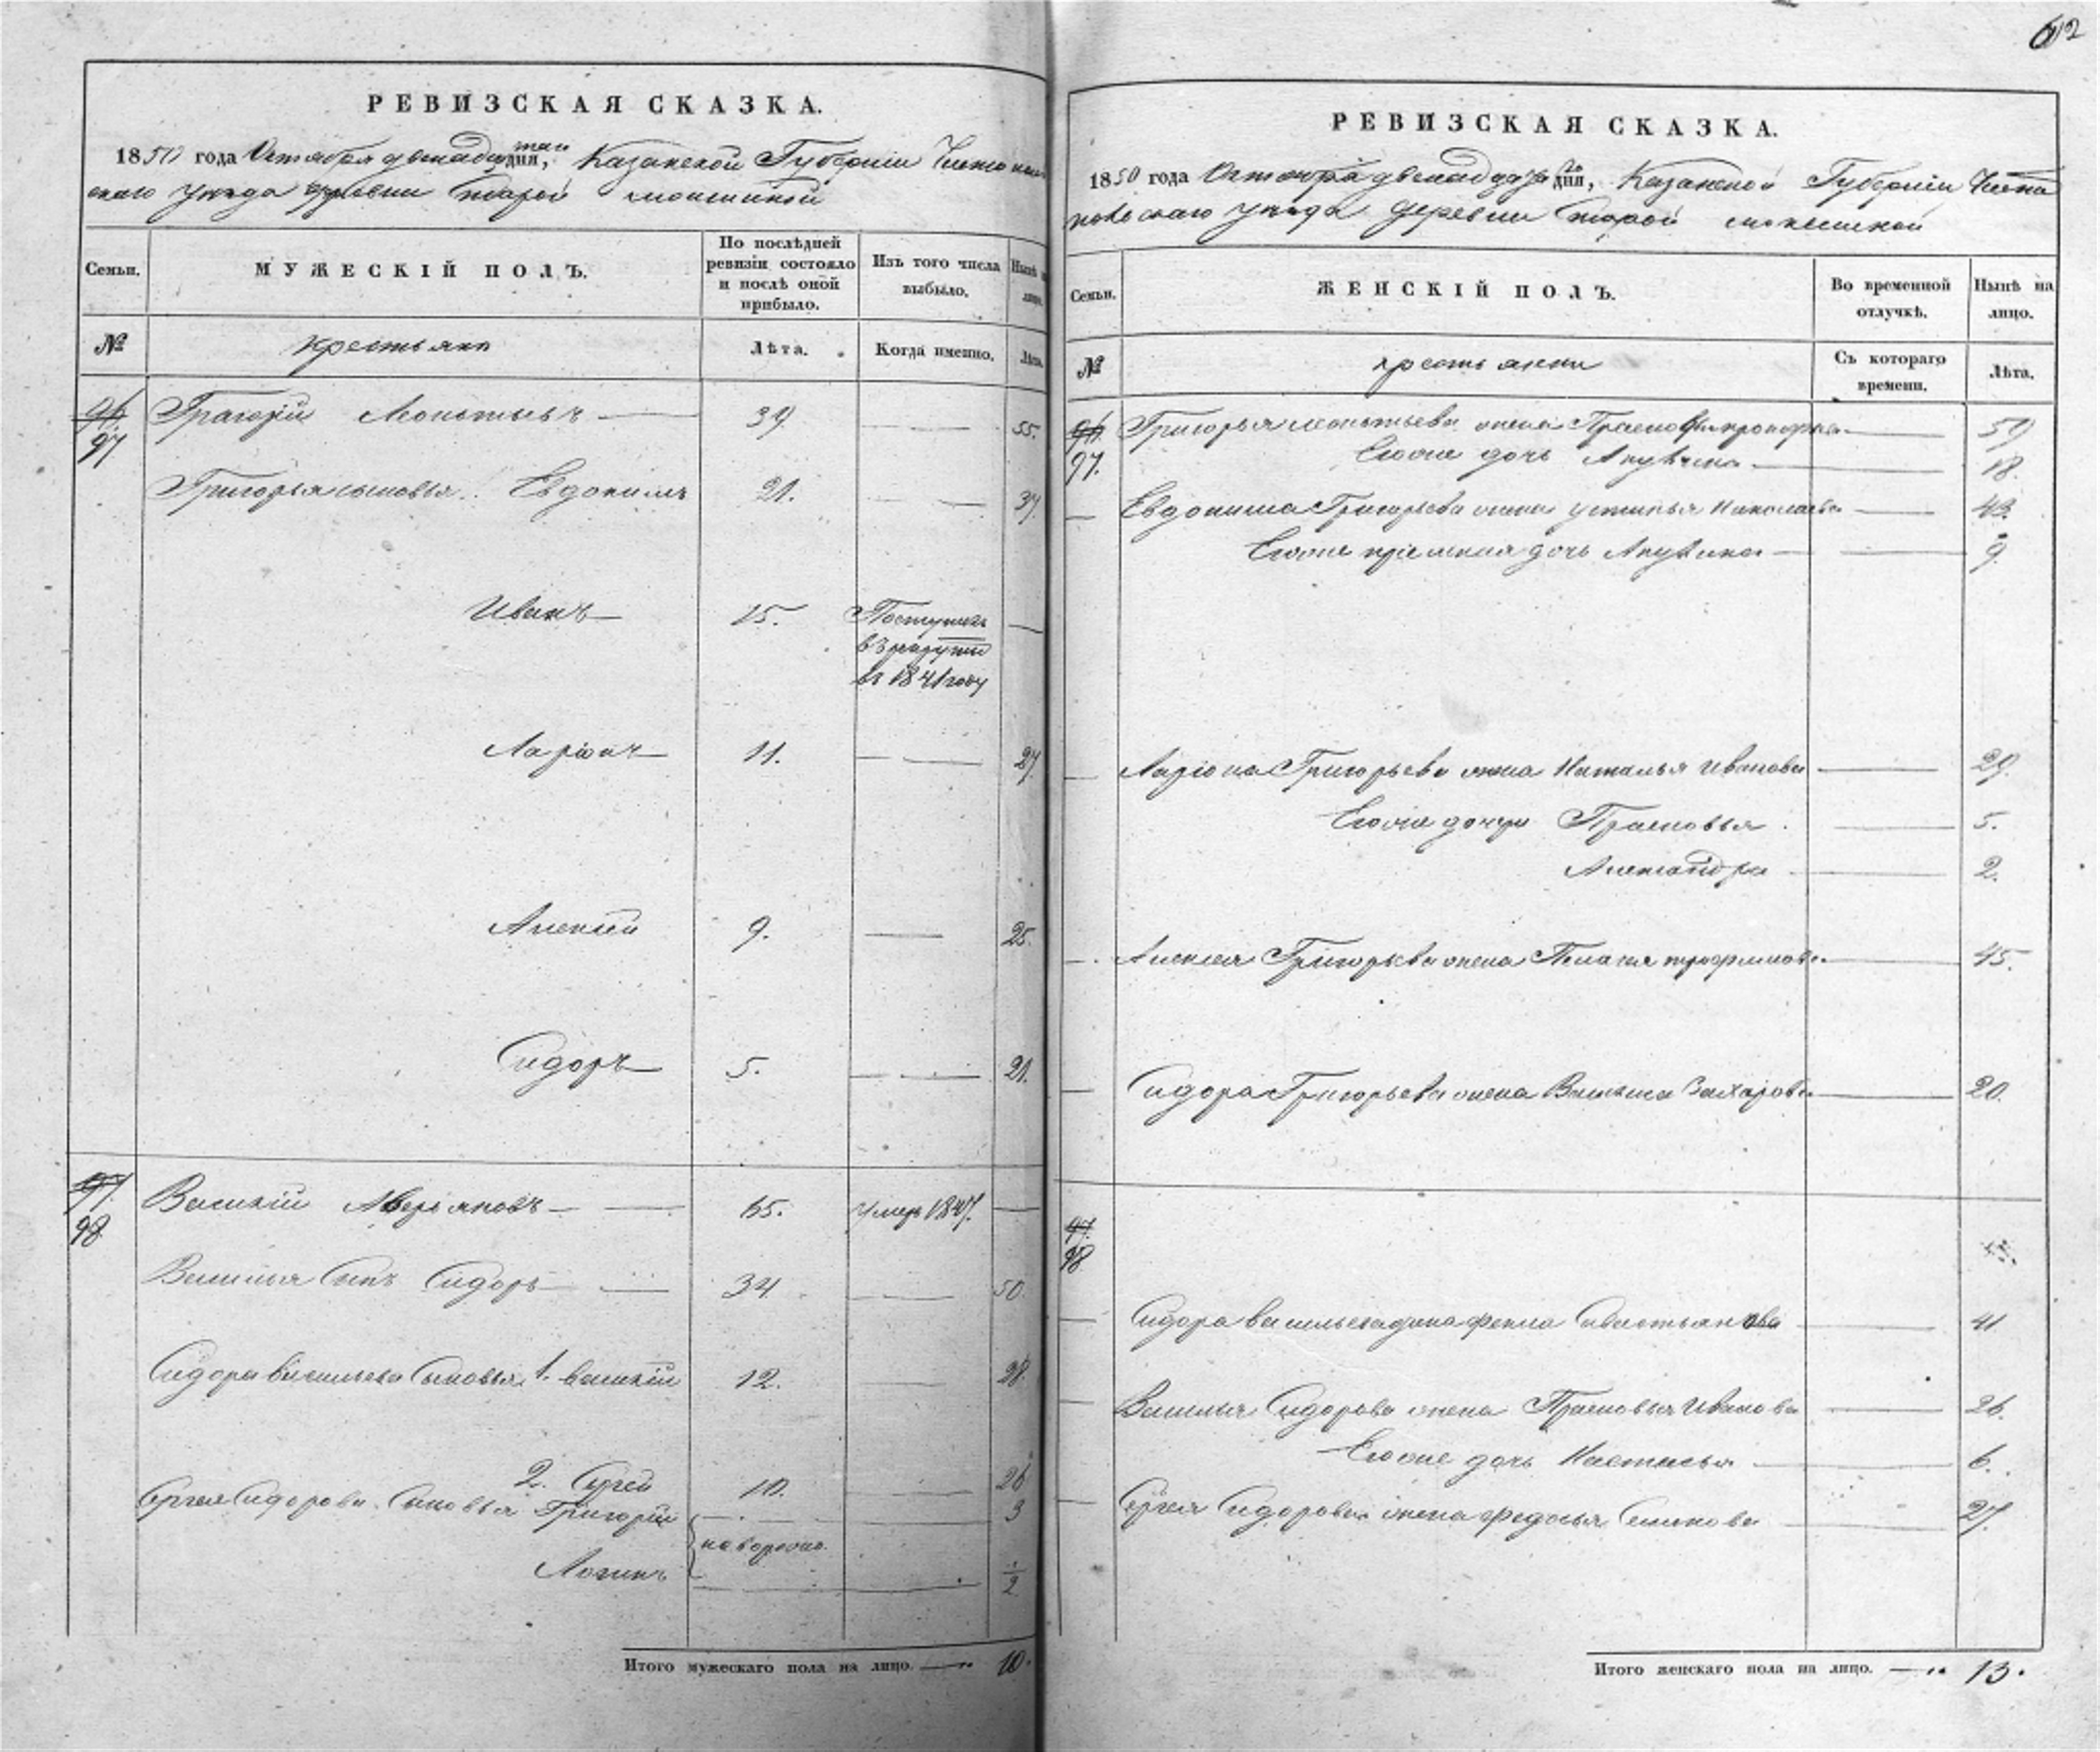 62
РЕВИЗСКАЯ СКАЗКА.
1850 года Октября двенадца таго дня, Казанской Губерніи Чистополь
скаго уезда деревни Старой
Семьи.
МУЖЕСКІЙ ПОЛЪ.
По послѣдней ревизіи состояло и послѣ оной прибыло.
Изъ того числа выбыло.
Нынѣ на лицо.
№
крестьяне
Лѣта.
Когда именно.
Лѣта.
96
97
Григорій Леонтьевъ 39. 55.
Григорья сыновья: Евдокимъ 21. 37.
Иванъ 15. Поступилъ
въ рекруты
въ 1841 году
Ларіонъ 11. 27.
Алексѣй 9. 25.
Сидоръ 5. 21.
97.
98
Василій Аверьяновъ 65. умеръ 1847.
Василья Сынъ Сидоръ 34 50.
Сидора Васильева Сыновья 1. Василій 12. 28.
2. Сергей 10. 26
Сергея Сидорова Сыновья Григорій 3
новорожд.
Логинъ 1/2
Итого мужескаго пола на лицо. 10.
РЕВИЗСКАЯ СКАЗКА.
1850 года Октября двенадца го дня, Казанской Губерніи Чисто
польскаго уезда деревни Старой
Семьи.
ЖЕНСКІЙ ПОЛЪ.
Во временной отлучкѣ.
Нынѣ на лицо.
№
крестьянки
Съ котораго времени.
Лѣта.
96.
97.
Григорья Леонтьева жена Прасковья Прокофьева 59
Егоже дочь Акулина 18.
Евдокима Григорьева жена Устинья Николаева 43.
Егоже пріемная дочь Акулина 9.
Ларіона Григорьева жена Наталья Иванова 29.
Егоже дочери Прасковья 5.
Александра 2.
Алексея Григорьева жена Пелагея Трофимова 45.
Сидора Григорьева жена Захарова 20.
97.
98
Сидора Васильева жена Фекла Савастьянова 41
Василья Сидорова жена Прасковья Иванова 26.
Егоже дочь Настасья 6.
Сергея Сидорова жена Федосья Семенова 27.
Итого женскаго пола на лицо. 13.